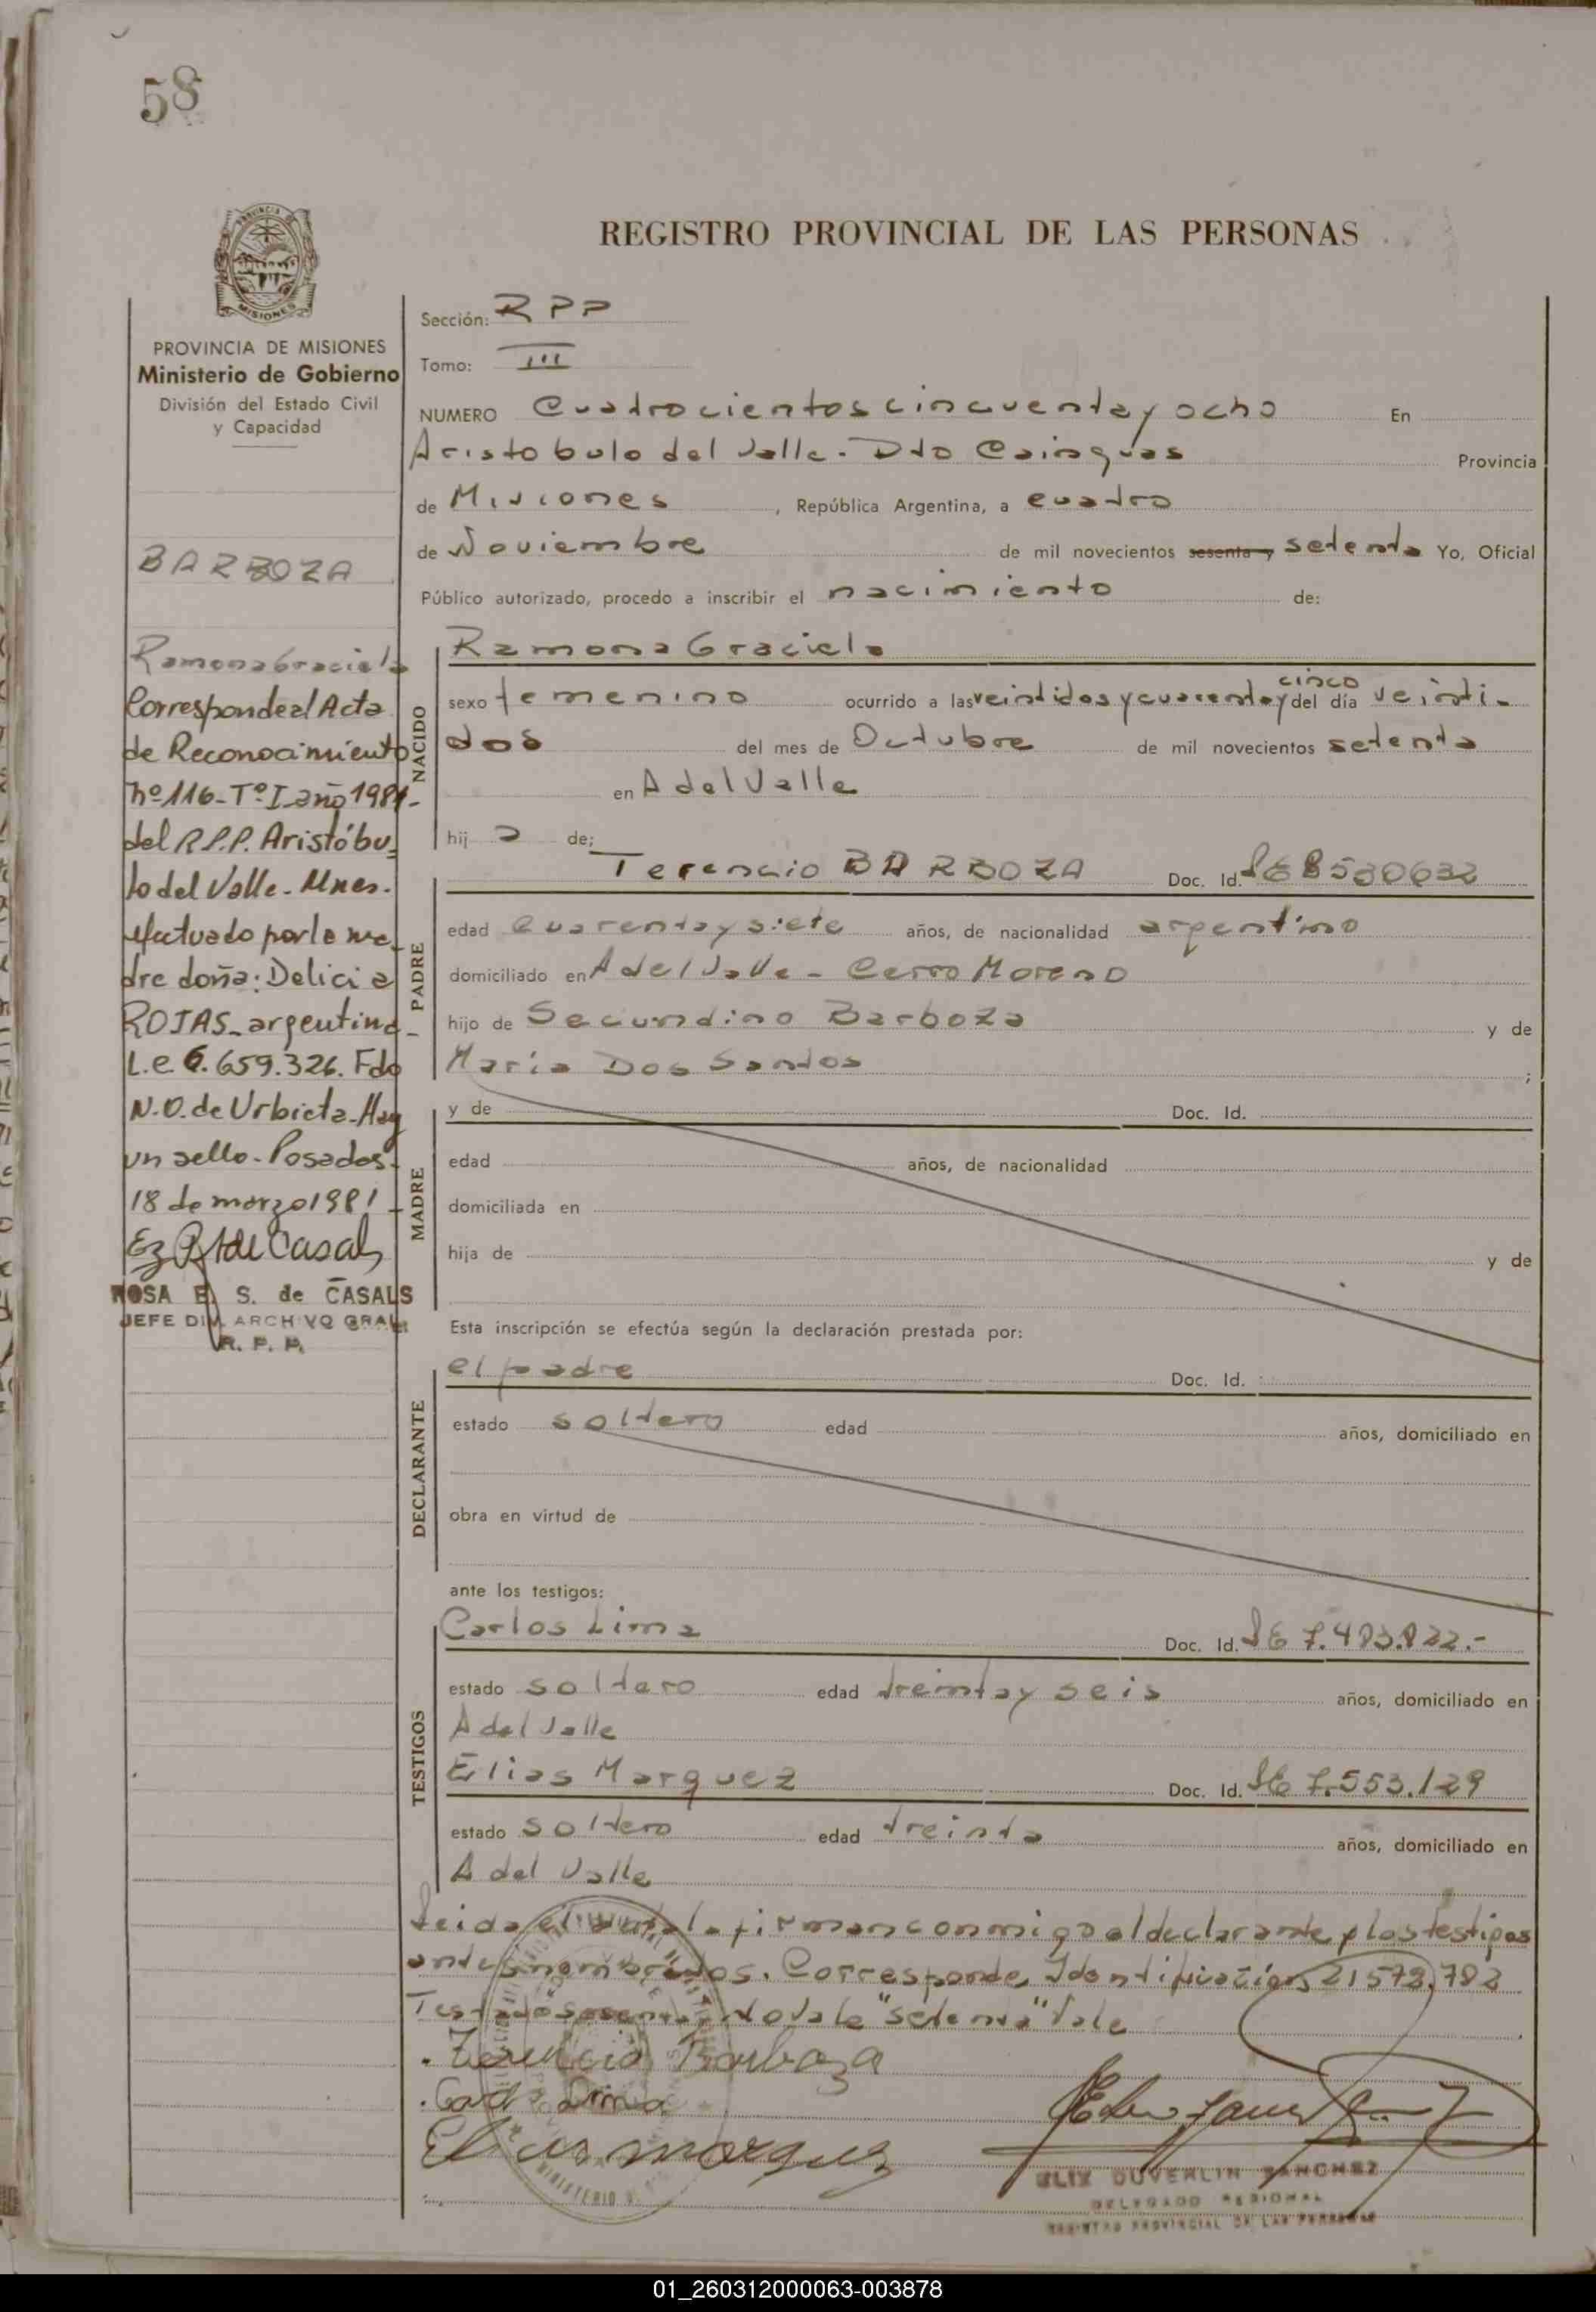 58
REGISTRO PROVINCIAL DE LAS PERSONAS
MISIONES
PROVINCIA DE MISIONES
Ministerio de Gobierno
División del Estado Civil
y Capacidad
BARBOZA
Ramona Graciela
Corresponde al Acta
de Reconocimiento
Nº 116-Tº I año 1981-
del R.P.P. Aristóbu-
lo del Valle-Mnes.
efectuado por la ma-
dre doña: Delicia
ROJAS-argentina-
L.e 6.659.326. Fdo
N.O. de Urbieta-Hay
un sello-Posadas
18 de marzo 1981-
ROSA E. S. de CASALS
JEFE DIV. ARCHIVO GRAL.
R. P. P.
Sección: RPP
Tomo: III
NUMERO Cuatrocientos cincuenta y ocho En
Aristobulo del Valle - Dto Cainguas Provincia
de Misiones, República Argentina, a cuatro
de Noviembre de mil novecientos sesenta y setenta Yo, Oficial
Público autorizado, procedo a inscribir el nacimiento de:
NACIDO
Ramona Graciela
sexo femenino ocurrido a las veintidos y cuarenta y cinco del día veinti-
dos del mes de Octubre de mil novecientos setenta
en A del Valle
hija de;
PADRE
Terencio BARBOZA Doc. Id.
edad cuarenta y siete años, de nacionalidad argentino
domiciliado en A del Valle - Cerro Moreno
hijo de Secundino Barboza y de
Maria Dos Santos ;
MADRE
y de Doc. Id.
edad años, de nacionalidad
domiciliada en
hija de y de
Esta inscripción se efectúa según la declaración prestada por:
DECLARANTE
el padre Doc. Id.
estado soltero edad años, domiciliado en
obra en virtud de
ante los testigos:
TESTIGOS
Carlos Lima Doc. Id.
estado soltero edad treinta y seis años, domiciliado en
A del Valle
Elias Marquez Doc. Id. LE 7.553.129
estado soltero edad treinta años, domiciliado en
A del Valle
Leida el acta la firman conmigo el declarante y los testigos
antes nombrados. Corresponde Identificación 21572.782
Testado "sesenta" No Vale "setenta" Vale
Terencio Barboza
Elias Marquez
ELIX DUVERLIN SANCHEZ
DELEGADO REGIONAL
REGISTRO PROVINCIAL DE LAS PERSONAS
01_260312000063-003878